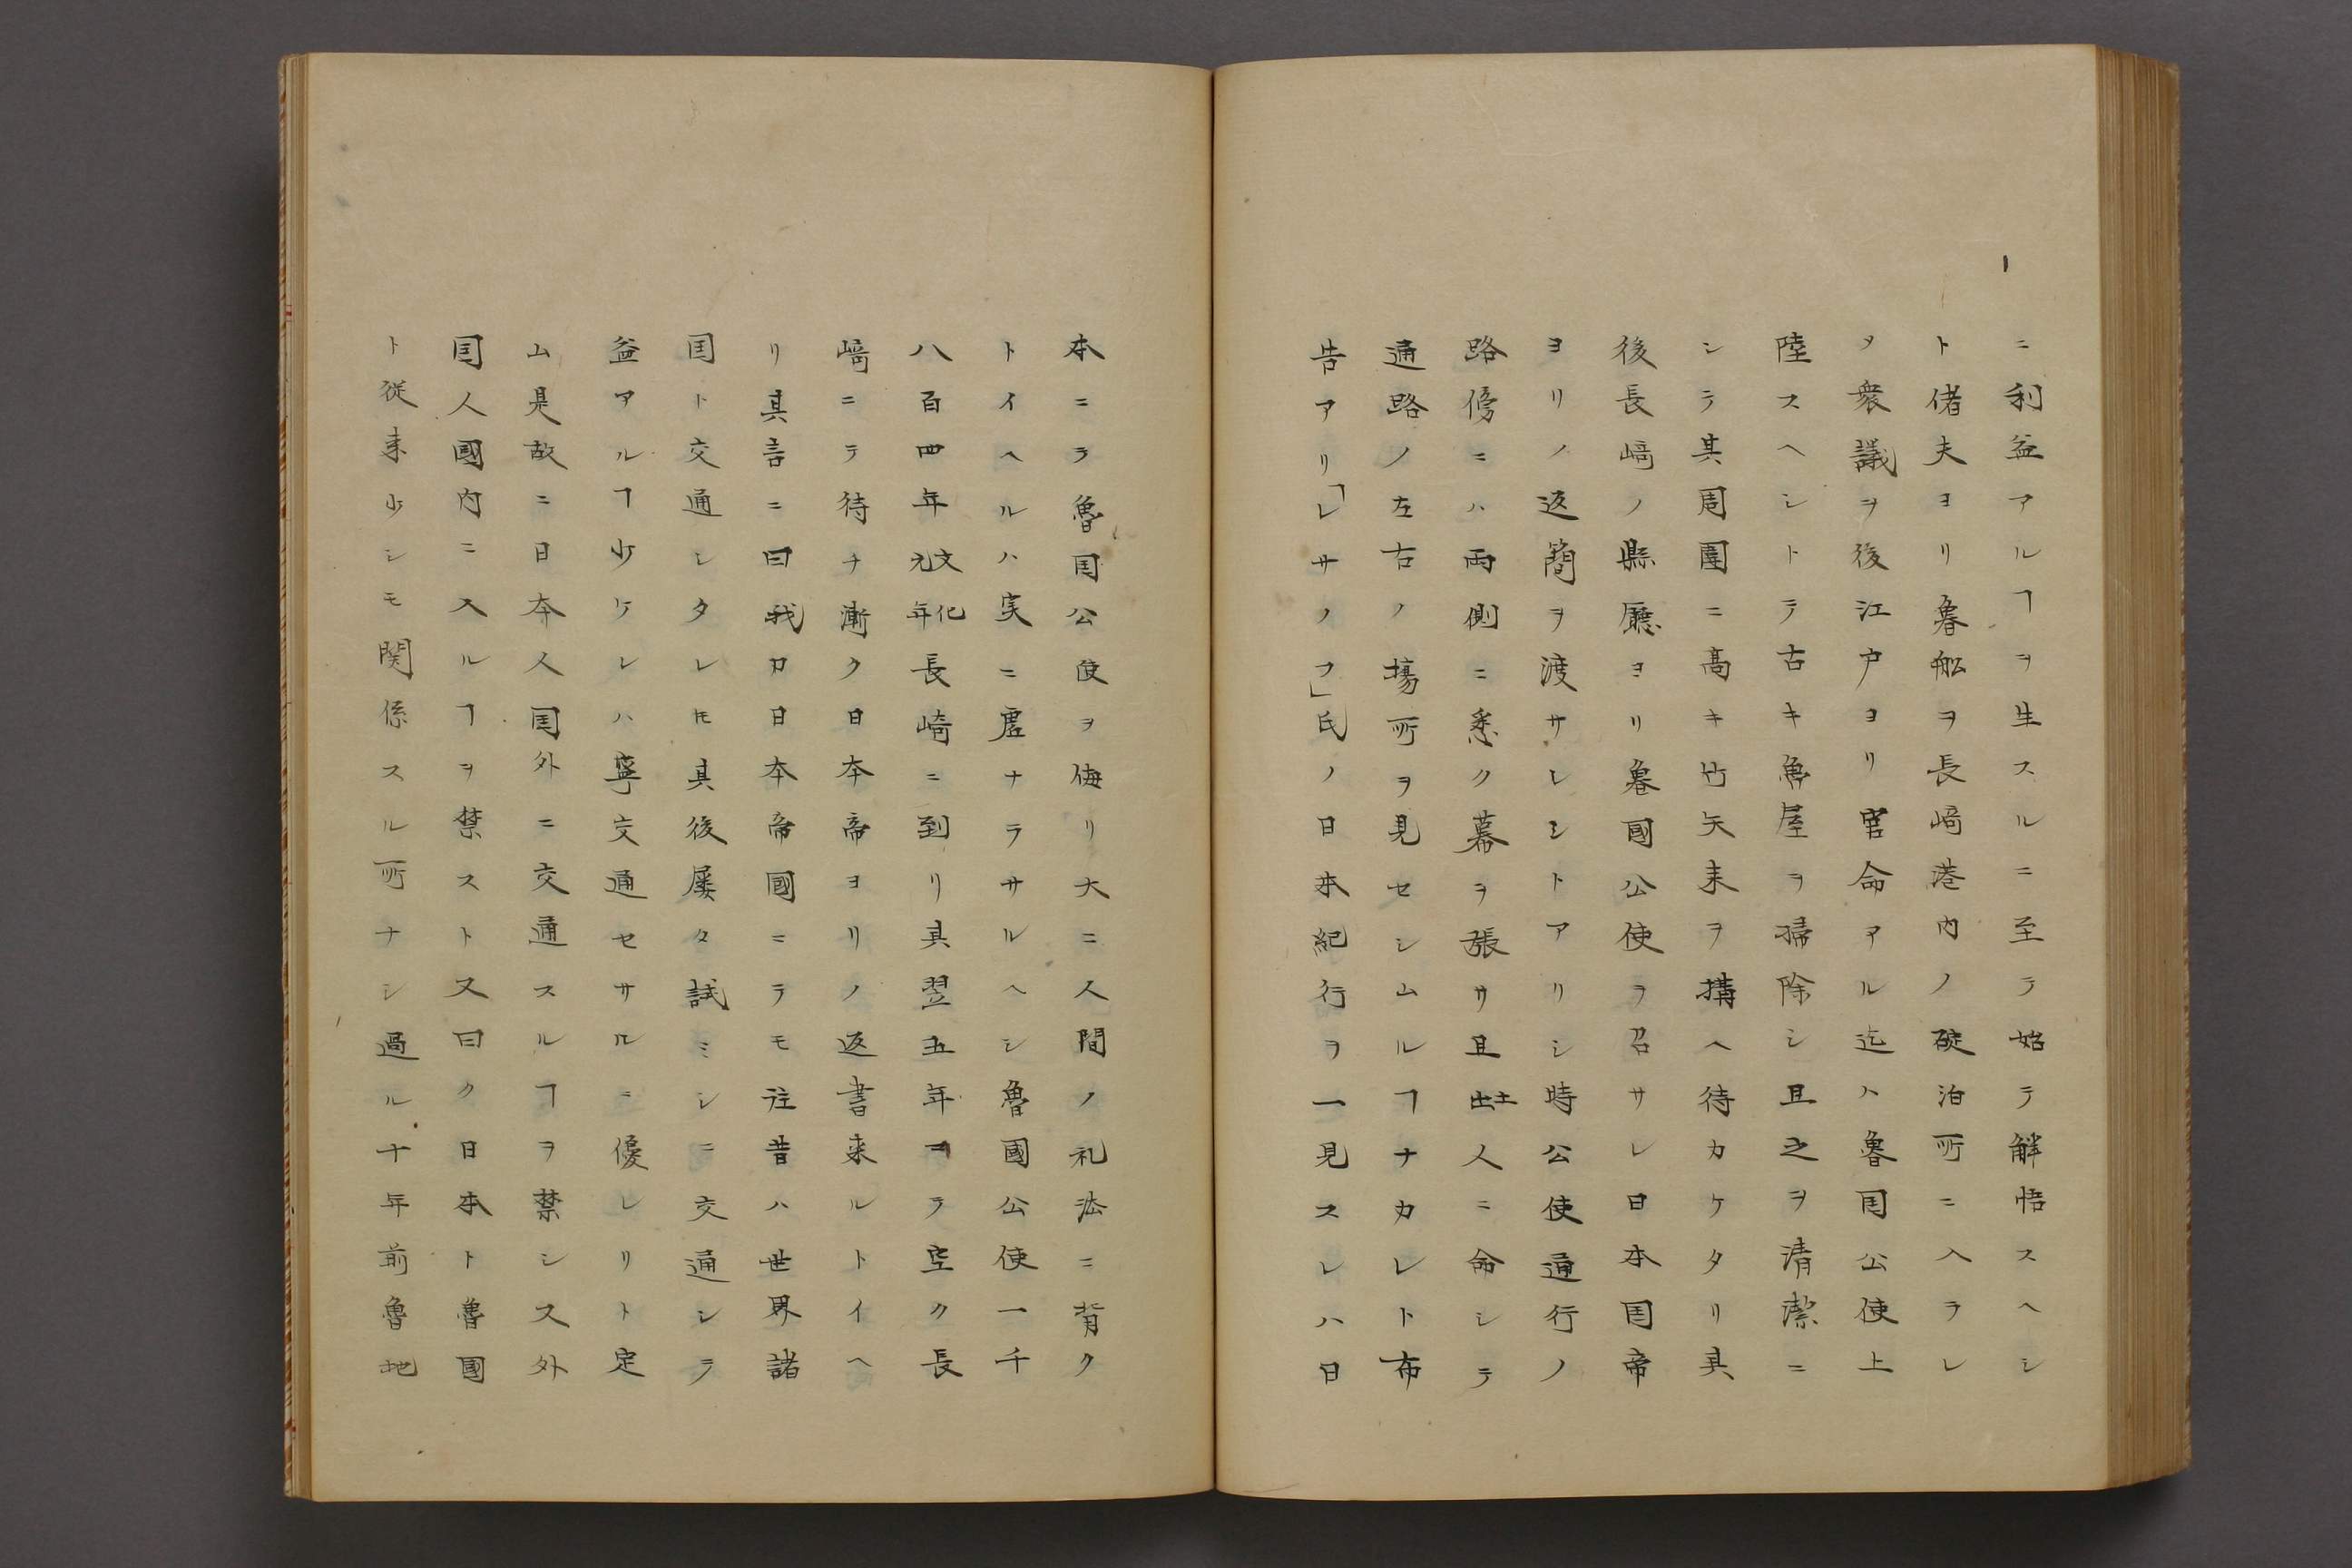 ニ利益アルヿヲ生スルニ至テ始テ解悟スヘシ
ト偖夫ヨリ魯舩ヲ長﨑港内ノ碇泊所ニ入ラレ
タ衆議ヲ後江戸ヨリ官命アル迄ハ魯国公使上
陸スヘシトテ古キ魚屋ヲ掃除シ且之ヲ清潔ニ
シテ其周圍ニ高キ竹矢来ヲ搆ヘ待カケタリ其
後長﨑ノ縣廰ヨリ魯國公使ヲ召サレ日本国帝
ヨリノ返簡ヲ渡サレシトアリシ時公使通行ノ
路傍ニハ両側ニ悉ク幕ヲ張サ且土人ニ命シテ
通路ノ左右ノ塲所ヲ見セシムルヿナカレト布
告アリ「レサノフ」氏ノ日本紀行ヲ一見スレハ日
本ニテ魯国公使ヲ侮リ大ニ人間ノ礼法ニ背ク
トイヘルハ実ニ虚ナラサルヘシ魯國公使一千
八百四年文化元年長崎ニ到リ其翌五年マテ空ク長
﨑ニテ待チ漸ク日本帝ヨリノ返書来ルトイヘ
リ其言ニ曰我カ日本帝國ニテモ往昔ハ世界諸
国ト交通シタレ𪜈其後屡タ試ミシニ交通シテ
益アルヿ少ケレハ寧交通セサルニ優レリト定
ム是故ニ日本人国外ニ交通スルヿヲ禁シ又外
国人國内ニ入ルヿヲ禁スト又曰ク日本ト魯國
ト従来少シモ関係スル所ナシ過ル十年前魯地